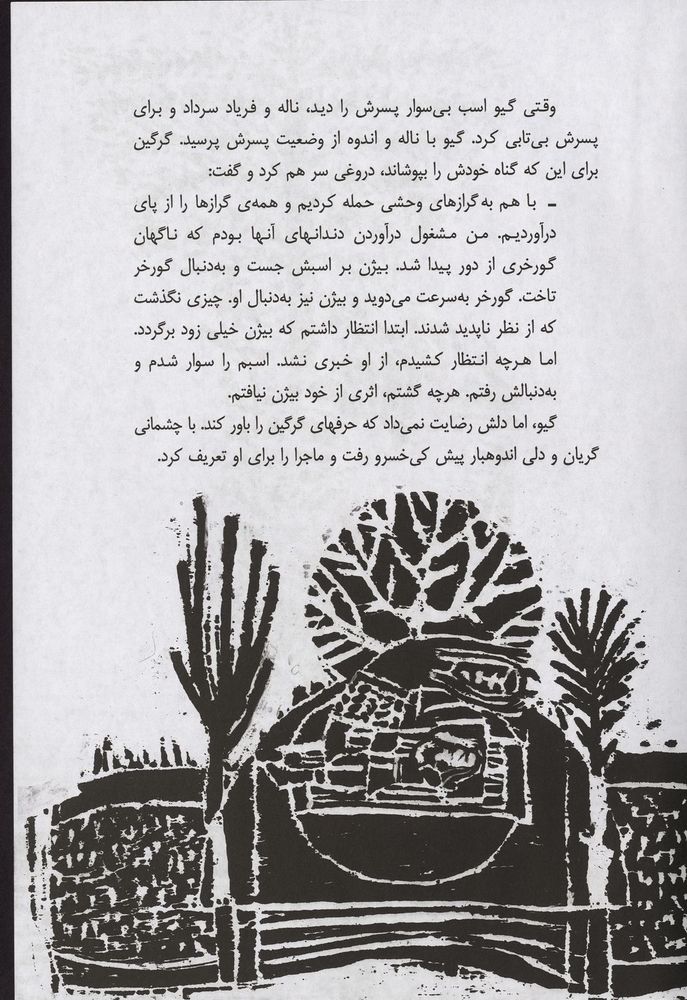 وقتی گیو اسب بی‌سوار پسرش را دید، ناله و فریاد سرداد و برای
پسرش بی‌تابی کرد. گیو با ناله و اندوه از وضعیت پسرش پرسید. گرگین
برای این که گناه خودش را بپوشاند، دروغی سر هم کرد و گفت:
ـ با هم به گرازهای وحشی حمله کردیم و همه‌ی گرازها را از پای
درآوردیم. من مشغول درآوردن دندانهای آنها بودم که ناگهان
گورخری از دور پیدا شد. بیژن بر اسبش جست و به‌دنبال گورخر
تاخت. گورخر به‌سرعت می‌دوید و بیژن نیز به‌دنبال او. چیزی نگذشت
که از نظر ناپدید شدند. ابتدا انتظار داشتم که بیژن خیلی زود برگردد.
اما هرچه انتظار کشیدم، از او خبری نشد. اسبم را سوار شدم و
به‌دنبالش رفتم. هرچه گشتم، اثری از خود بیژن نیافتم.
گیو، اما دلش رضایت نمی‌داد که حرفهای گرگین را باور کند. با چشمانی
گریان و دلی اندوهبار پیش کی‌خسرو رفت و ماجرا را برای او تعریف کرد.